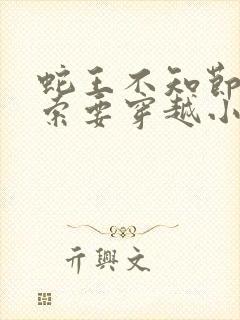 蛇王不知节
索要穿越小
亓興文